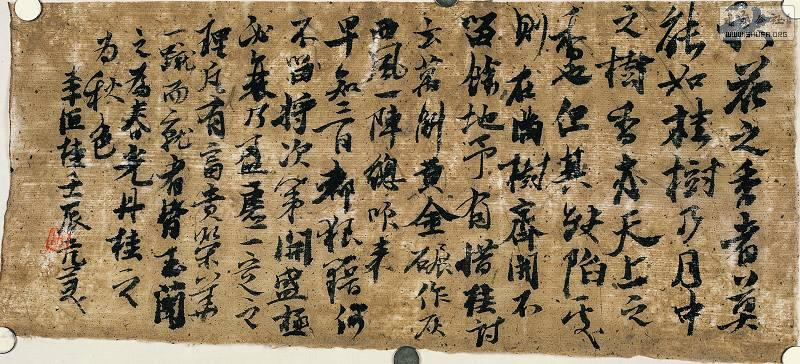 秋花之香者莫
能如桂樹乃月中
之樹香亦天上之
香也但其缺陷處
則在滿樹齊開不
留餘地予有惜桂詩
云萬斛黃金碾作灰
西風一陣總吹來
早知三日都狼籍何
不留將次第開盛極
必衰乃盈虛一定之
理凡有富貴榮華
一蹴而就者皆玉蘭
之為春光丹桂之
為秋色
李 桂壬辰
WWW.SHUFA.ORG